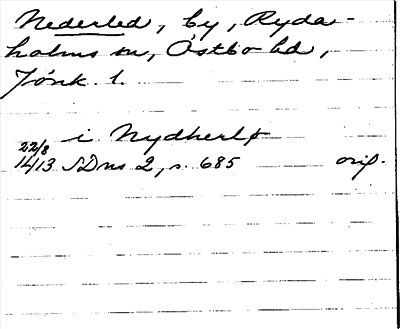 Nederled, by, Ryda-
holms sn, Östbo hd,
Jönk. l.
i Nydherlø
22/8
1413 SDns 2, s. 685 orig.